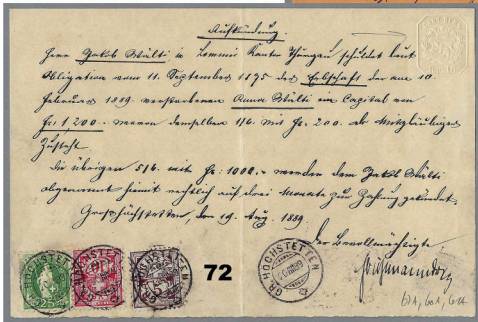 Aufkündung.
Herr Jakob Wälti in Lommis Kanton Thurgau schuldet laut
Obligation vom 11. September 1875 der Erbschaft der am 10.
Februar 1889. verstorbenen Anna Wälti ein Capital von
Fr: 1200. wovon demselben 1/6 mit Fr: 200. als Miterbe
zusteht
Die übrigen 5/6 mit Fr: 1000. werden dem Jakob Wälti
obgenannt hiemit rechtlich auf drei Monate zur Zahlung gekündet.
Großhöchstetten, den 19. Aug. 1889.
Der Bevollmächtigte
GR. HÖCHSTETTEN
72
GR. HÖCHSTETTEN
20.VIII.89